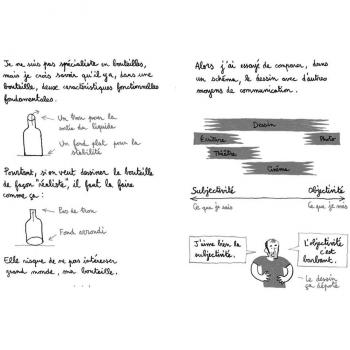 Je ne suis pas spécialiste en bouteilles,
mais je crois savoir qu'il y a, dans une
bouteille, deux caractéristiques fonctionnelles
fondamentales.
Un trou pour la
sortie du liquide
Un fond plat pour la
stabilité
Pourtant, si on veut dessiner la bouteille
de façon "réaliste", il faut la faire
comme ça :
Pas de trou
Fond arrondi
Elle risque de ne pas intéresser
grand monde, ma bouteille.
Alors j'ai essayé de comparer, dans
un schéma, le dessin avec d'autres
moyens de communication.
Dessin
Écriture
Photo
Théâtre
Cinéma
Subjectivité
Objectivité
Ce que je sais
Ce que je vois
J'aime bien la
subjectivité.
L'objectivité
c'est
barbant.
Le dessin
ça dépote